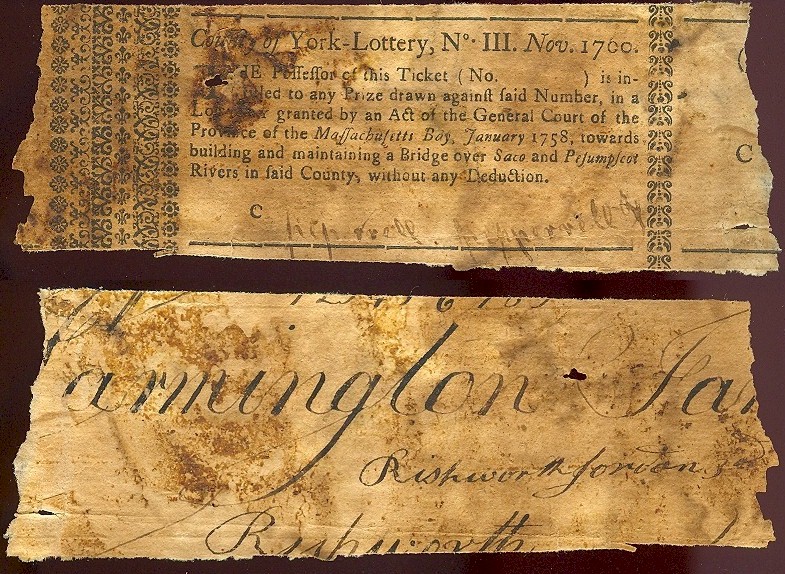 County of York-Lottery, No. III. Nov. 1760.
THE Poſſeſſor of this Ticket (No. ) is in-
titled to any Prize drawn againſt ſaid Number, in a
Lottery granted by an Act of the General Court of the
Province of the Maſſachuſetts Bay, January 1758, towards
building and maintaining a Bridge over Saco and Peſumpſcot
Rivers in ſaid County, without any Deduction.
C
C
armington Jan
Rishworth Jordan
Rishworth